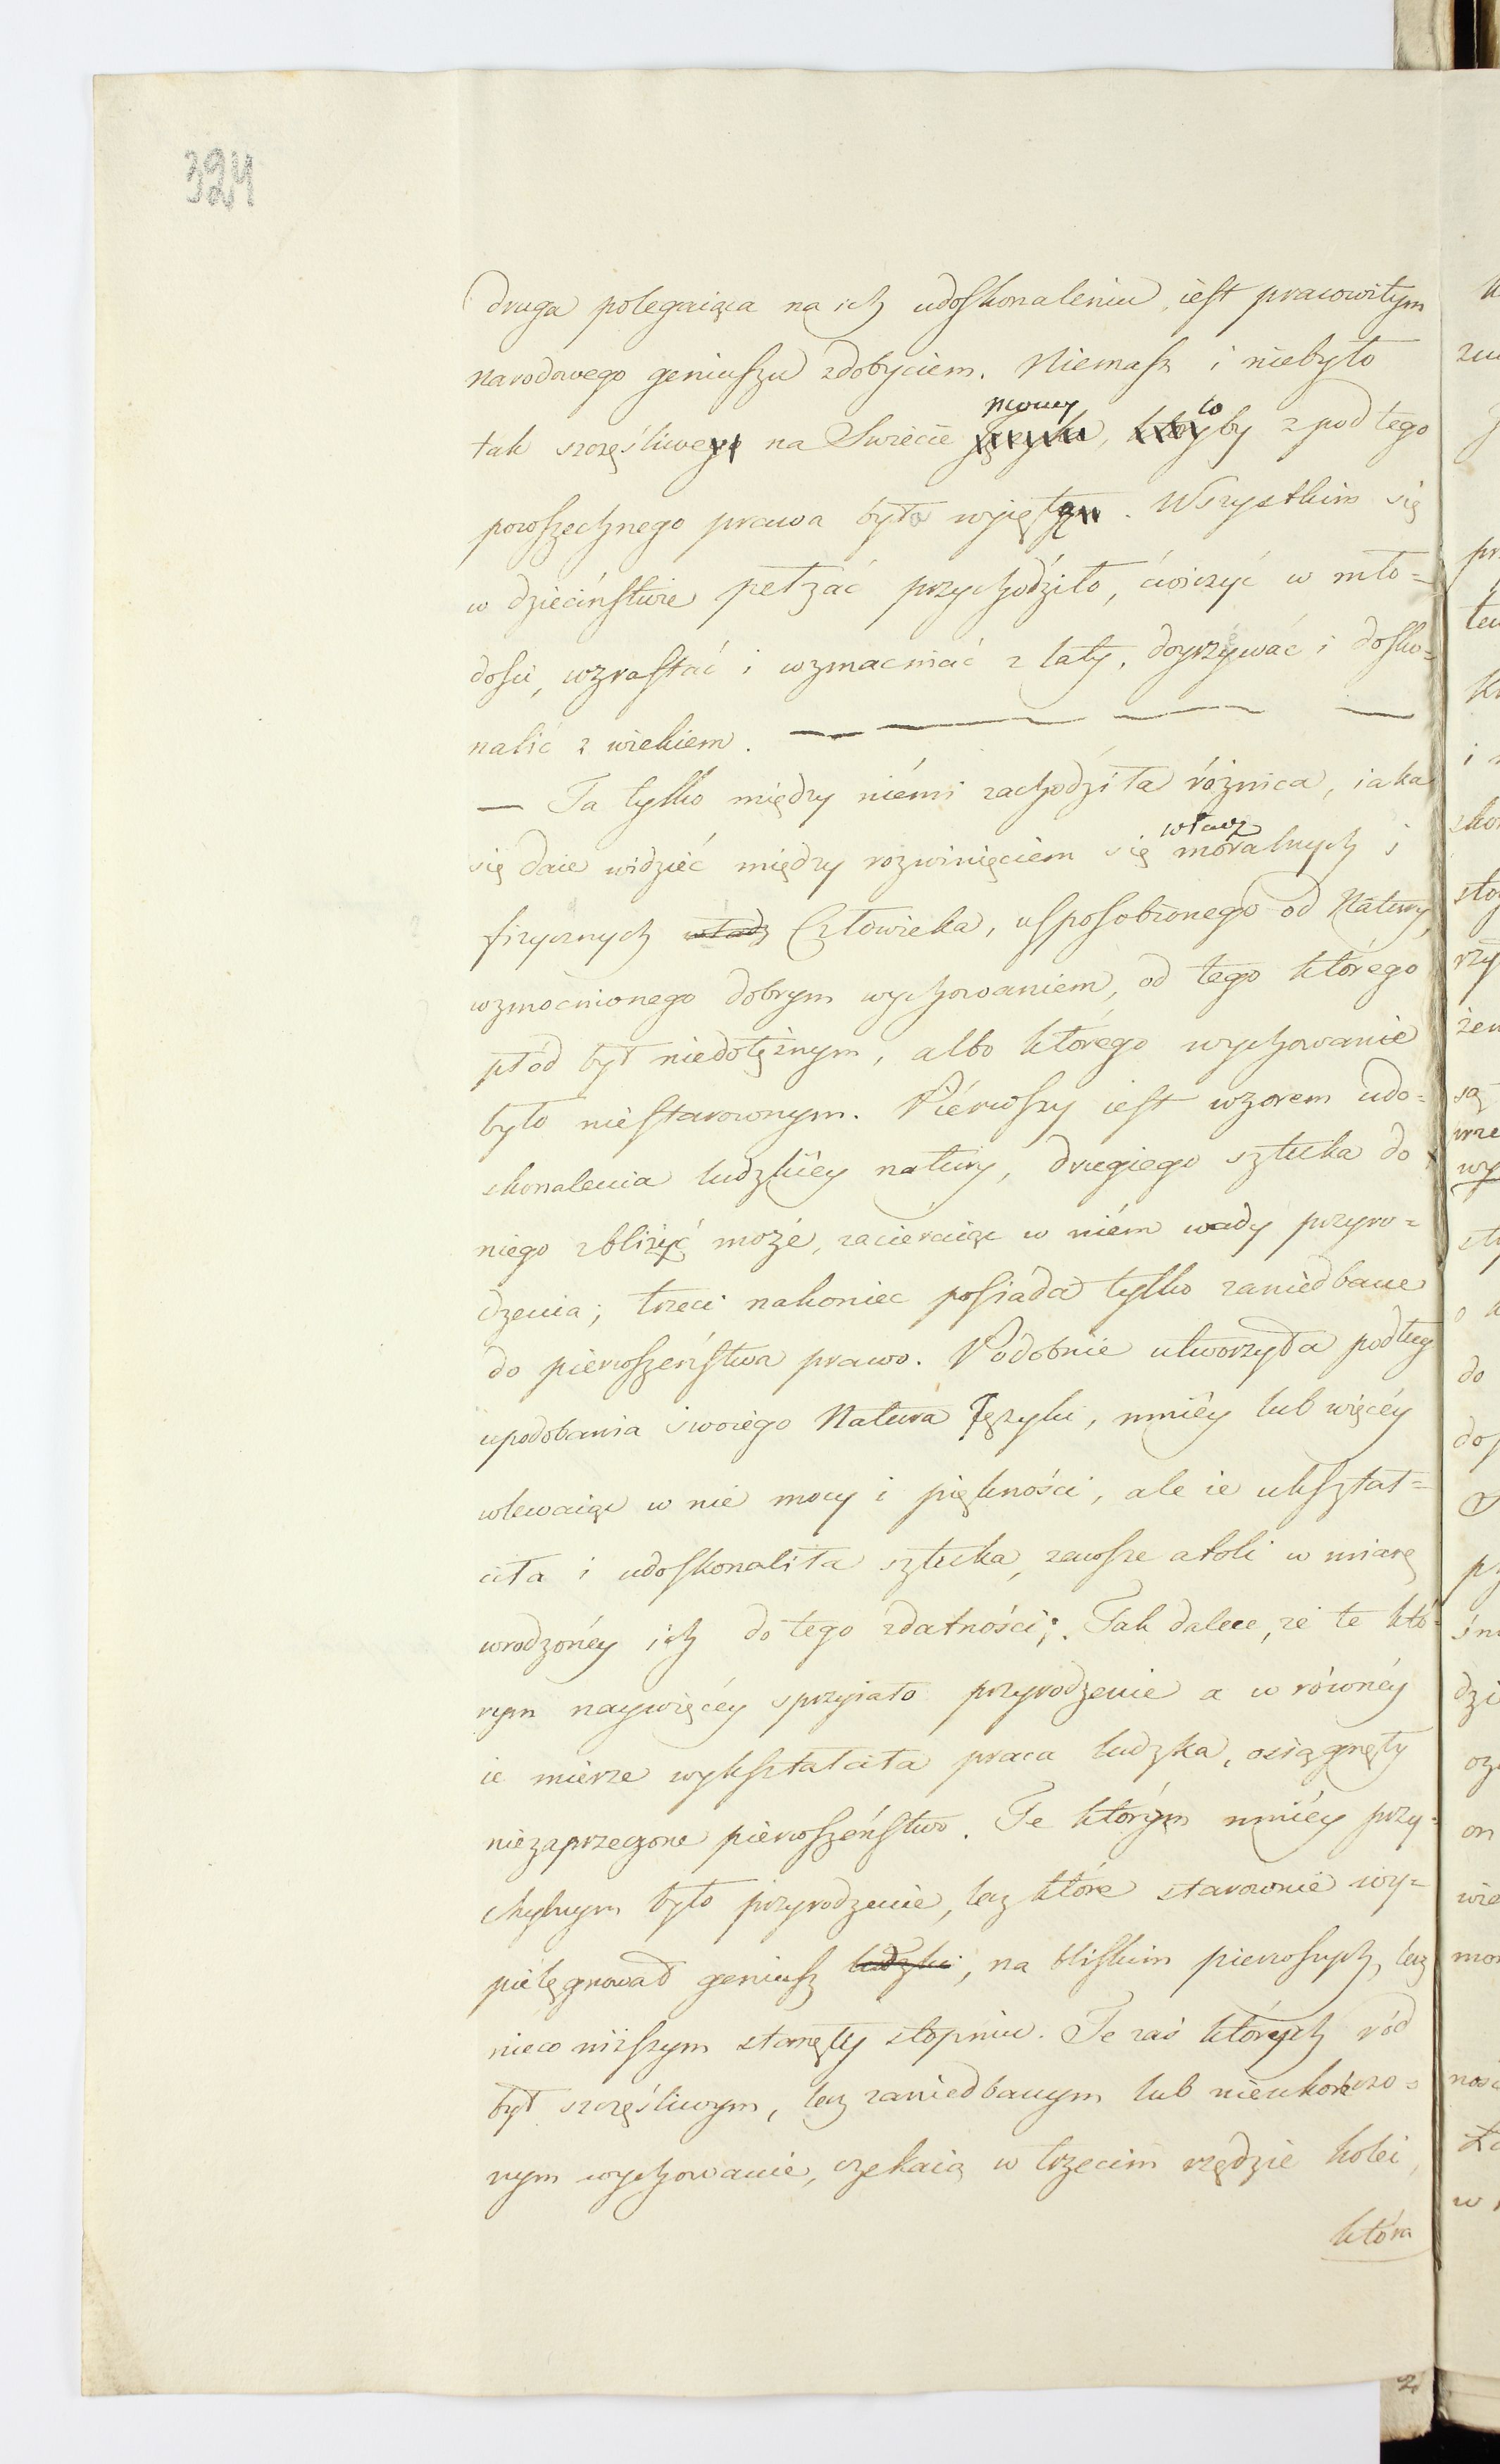 324
druga polegaiąca na ich udoskonaleniu, iest pracowitym
narodowego geniuszu zdobyciem. Niemasz i niebyło
mowy co
tak szczęśliwey na Swiecie języka, by z pod tego
powszechnego prawa była wyięta. Wszystkim się
w dzieciństwie pełzać przychodziło, ćwiczyć w mło=
dości, wzrastać i wzmacniać z laty, doyrzéwać i dosko=
nalić z wiekiem.
— Ta tylko między niémi zachodziła różnica, iaka
władz
się daie widzieć między rozwinięciem się moralnych i
fizycznych władz Człowieka, usposobionego od Natury,
wzmocnionego dobrym wychowaniem, od tego którego
płód był niedołężnym, albo którego wychowanie
było niestarownym. Piérwszy iest wzorem udo=
skonalenia ludzkiéy natury, drugiego sztuka do
niego zbliżyć może, zacieraiąc w niém wady przyro=
dzenia; trzeci nakoniec posiada tylko zaniedbane
do pierwszeństwa prawo. Podobnie utworzyła podług
upodobania swoiego Natura Języki, mniéy lub więcéy
wlewaiąc w nie mocy i piękności, ale ie ukształ=
ciła i udoskonaliła sztuka, zawsze atoli w miarę
wrodzonéy ich do tego zdatności;. Tak dalece, że te któ=
rym naywięcéy sprzyiało przyrodzenie a w równéy
ie mierze wykształciła praca ludzka, osiągnęły
niezaprzeczone pierwszeństwo. Te którym mniéy przy=
chylnym było przyrodzenie, lecz które starownie wy=
pielęgnował geniusz ludzki, na bliskim pierwszych, lecz
nieco niższym stanęły stopniu. Te zaś których ród
był szczęśliwym, lecz zaniedbanym lub nieukończo=
nym wychowanie, czekaią w trzecim rzędzie kolei,
która